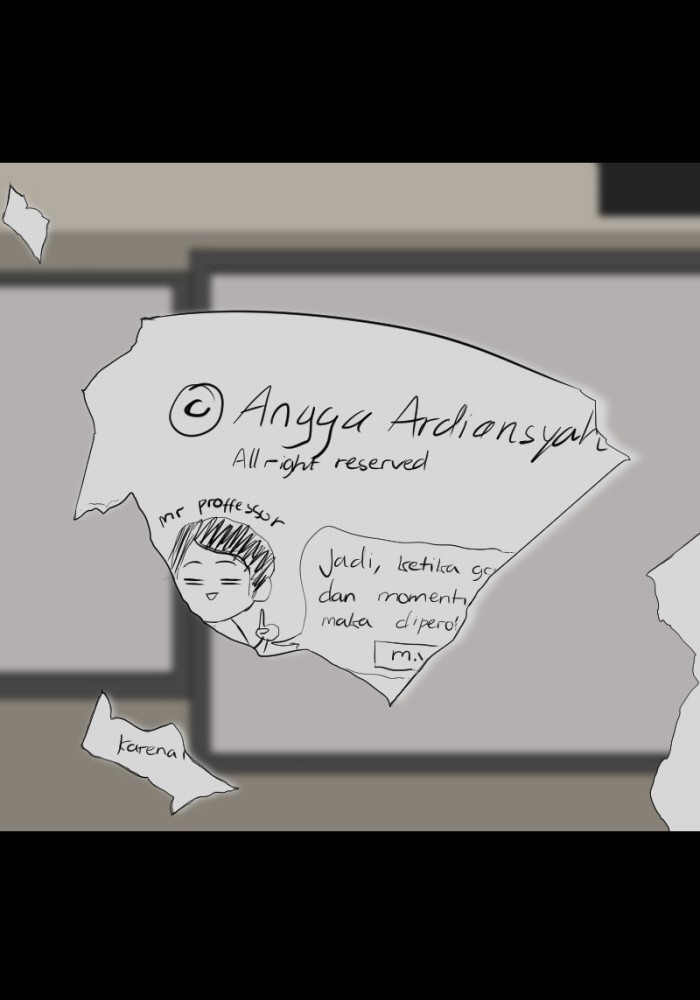 © Angga Ardiansyah
All right reserved
mr proffessor
Jadi, ketika
dan
maka
karena